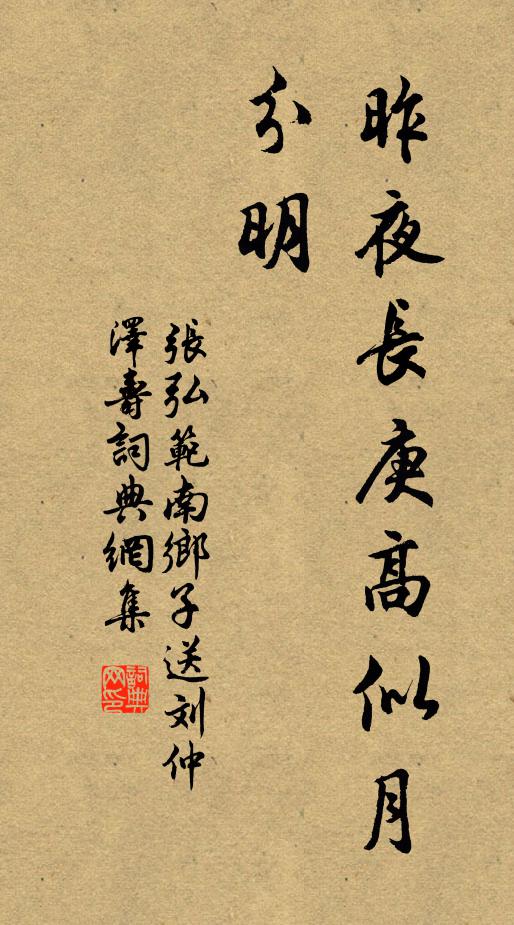 昨夜長庚高似月
分明
張弘範南鄉子送刘仲
澤壽詞典網集
詞典
网印